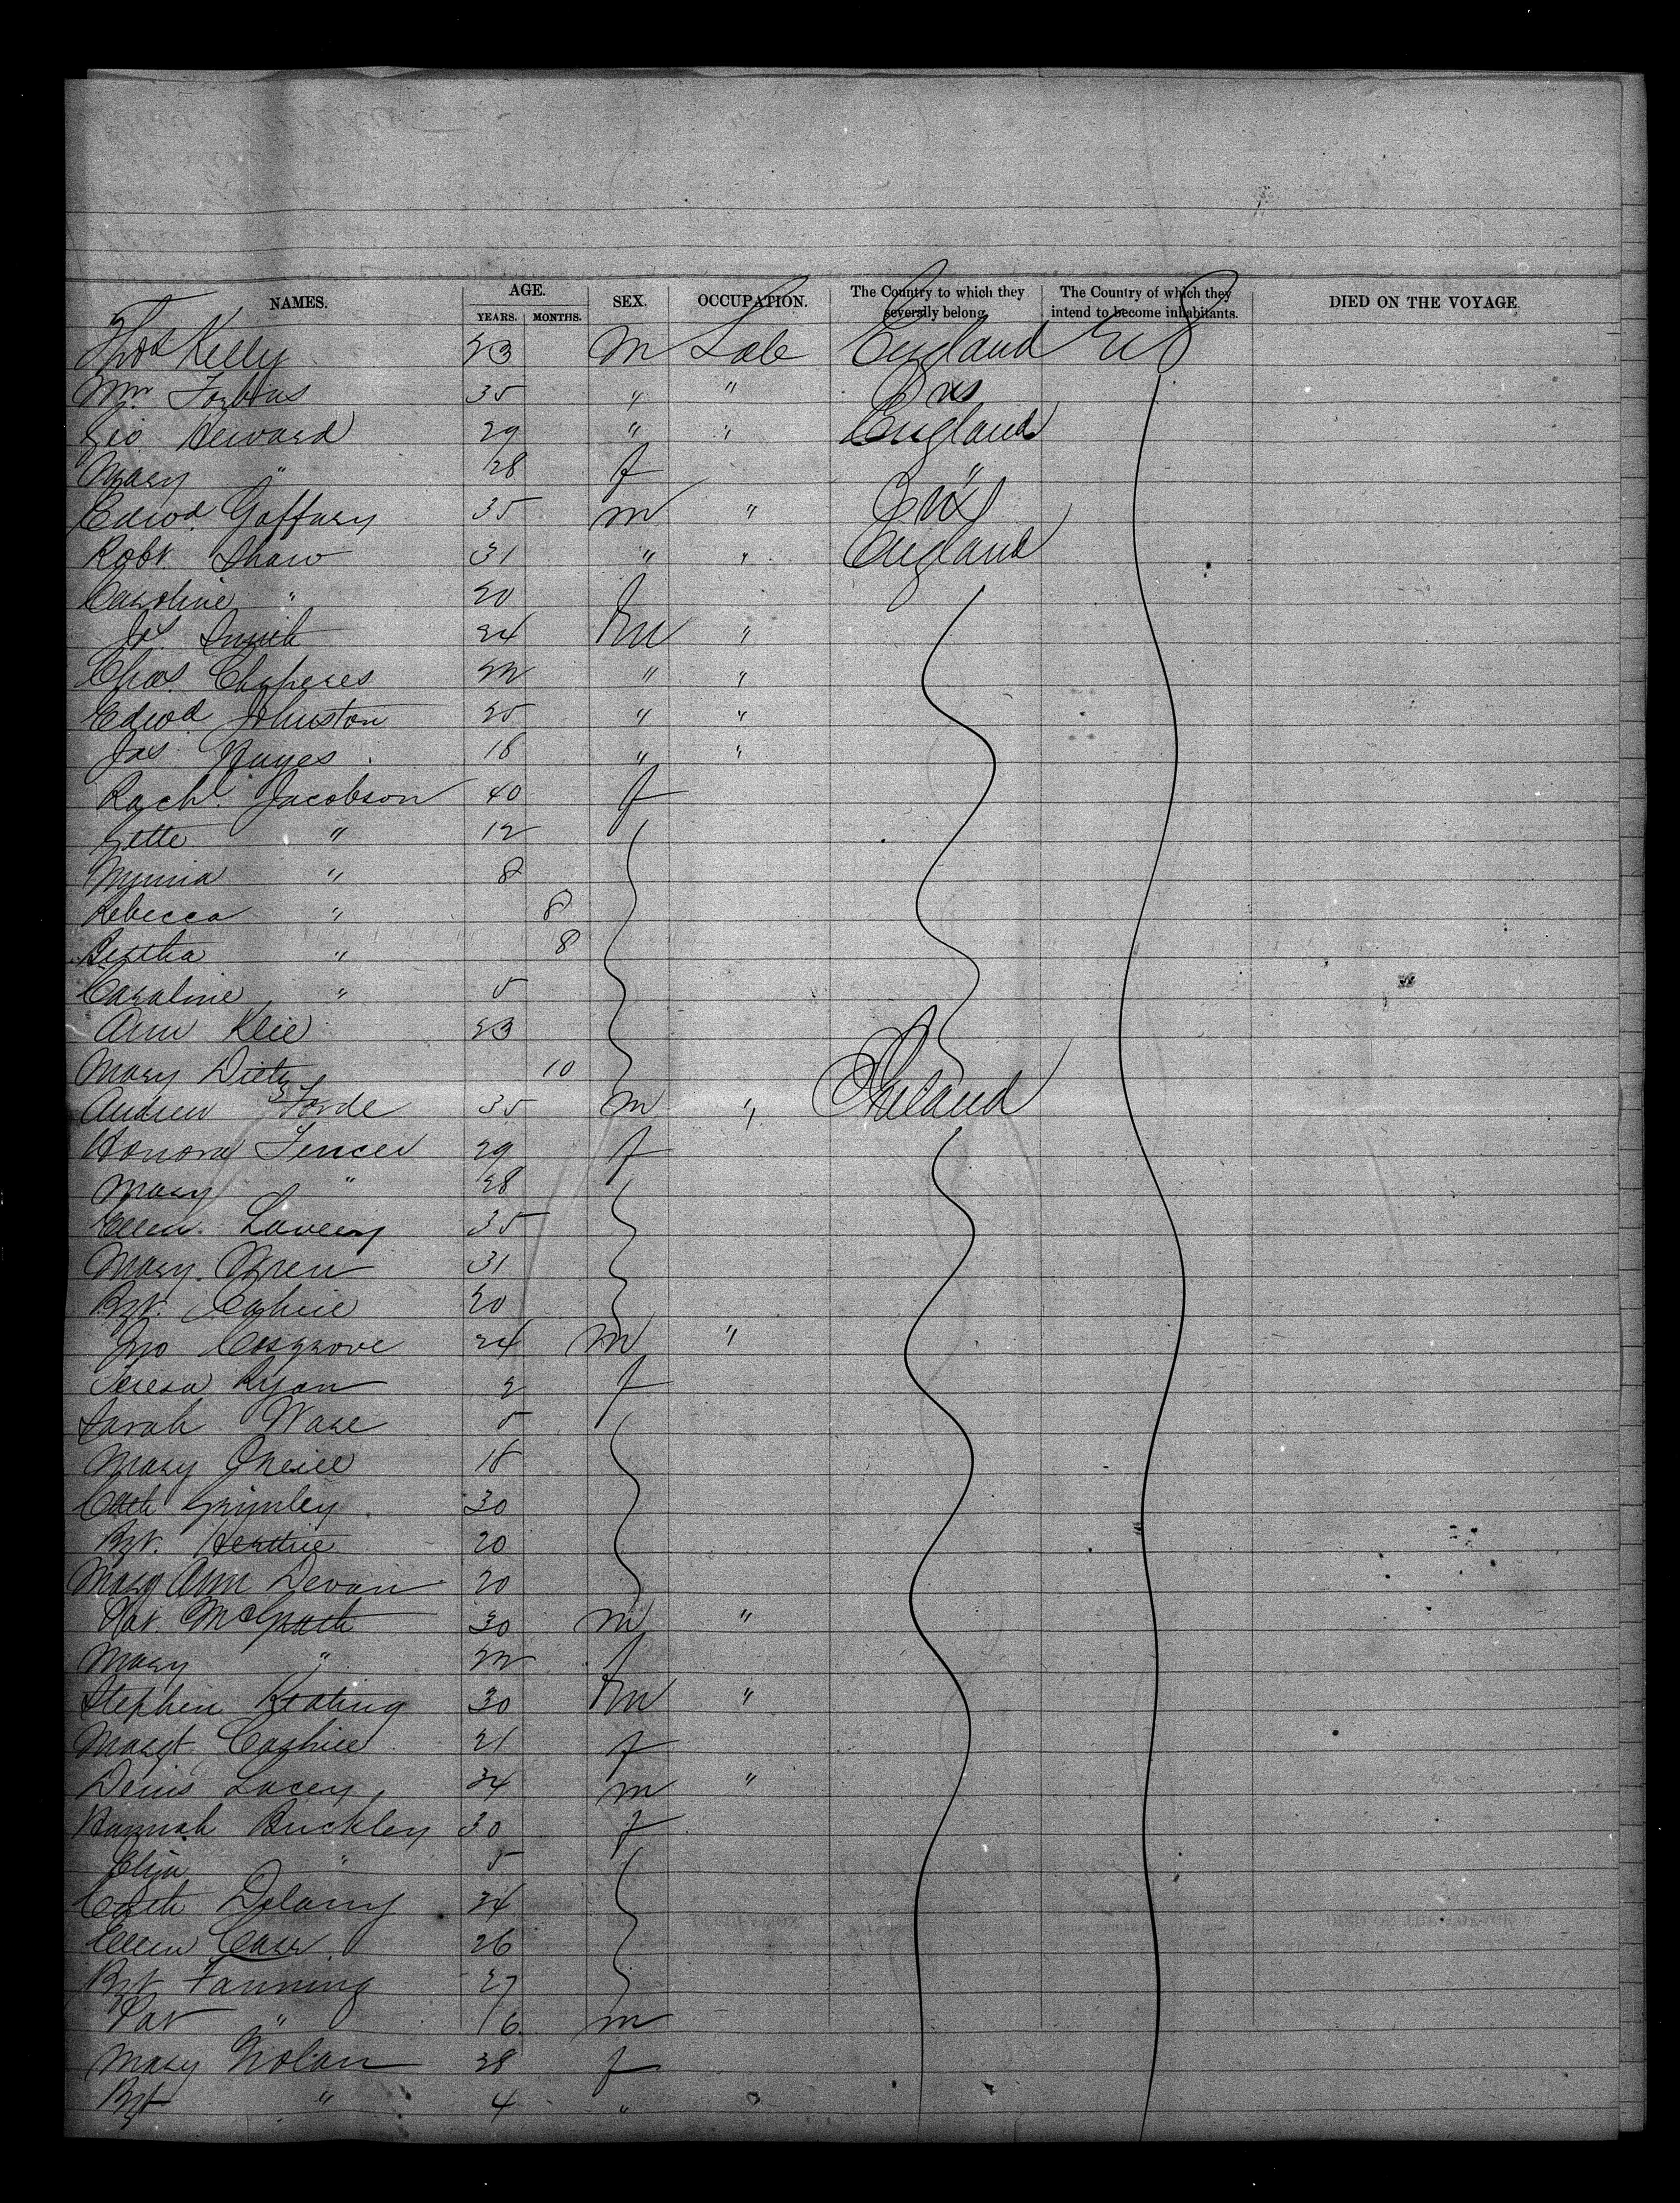 NAMES. AGE. YEARS. MONTHS. SEX. OCCUPATION. The Country to which they severally belong. The Country of which they intend to become inhabitants. DIED ON THE VOYAGE.
Thos Kelly 23 M Lab England U S
Wm Forbes 35 " " U S
Geo Heward 29 " " England
Mary " 28 f "
Edwd Gaffney 35 m " U S
Robt Shaw 31 " " England
Caroline " 20 f
Js. Smith 24 m "
Chas. 22 " "
Edwd Johnston 25 " "
Jas Hayes 18 " "
Rachl. Jacobson 40 f
Gette " 12
" 8
Rebecca " 8
Bertha " 8
Caroline " 5
Ann 23
Mary Dietz 10
Andrew Forde 35 m " Ireland
Honora 29 f
Mary " 28
Ellen Lavery 35
Mary 31
Bgt. 20
Jno Cosgrove 24 m "
Teresa Ryan 2 f
Sarah Ware 5
Mary Oneill 18
Cath Grimley 30
Bgt. 20
Mary Ann Devan 20
Pat. McGrath 30 m "
Mary " 22 f
Stephen Keating 30 m "
Margt Cashill 21 f
Denis Lacey 34 m "
Hannah Buckley 30 f
Eliza " 5
Cath Delany 34
Ellen Carr 26
Bgt Fanning 27
Pat " 16 m
Mary Nolan 28 f
Bgt " 4 "